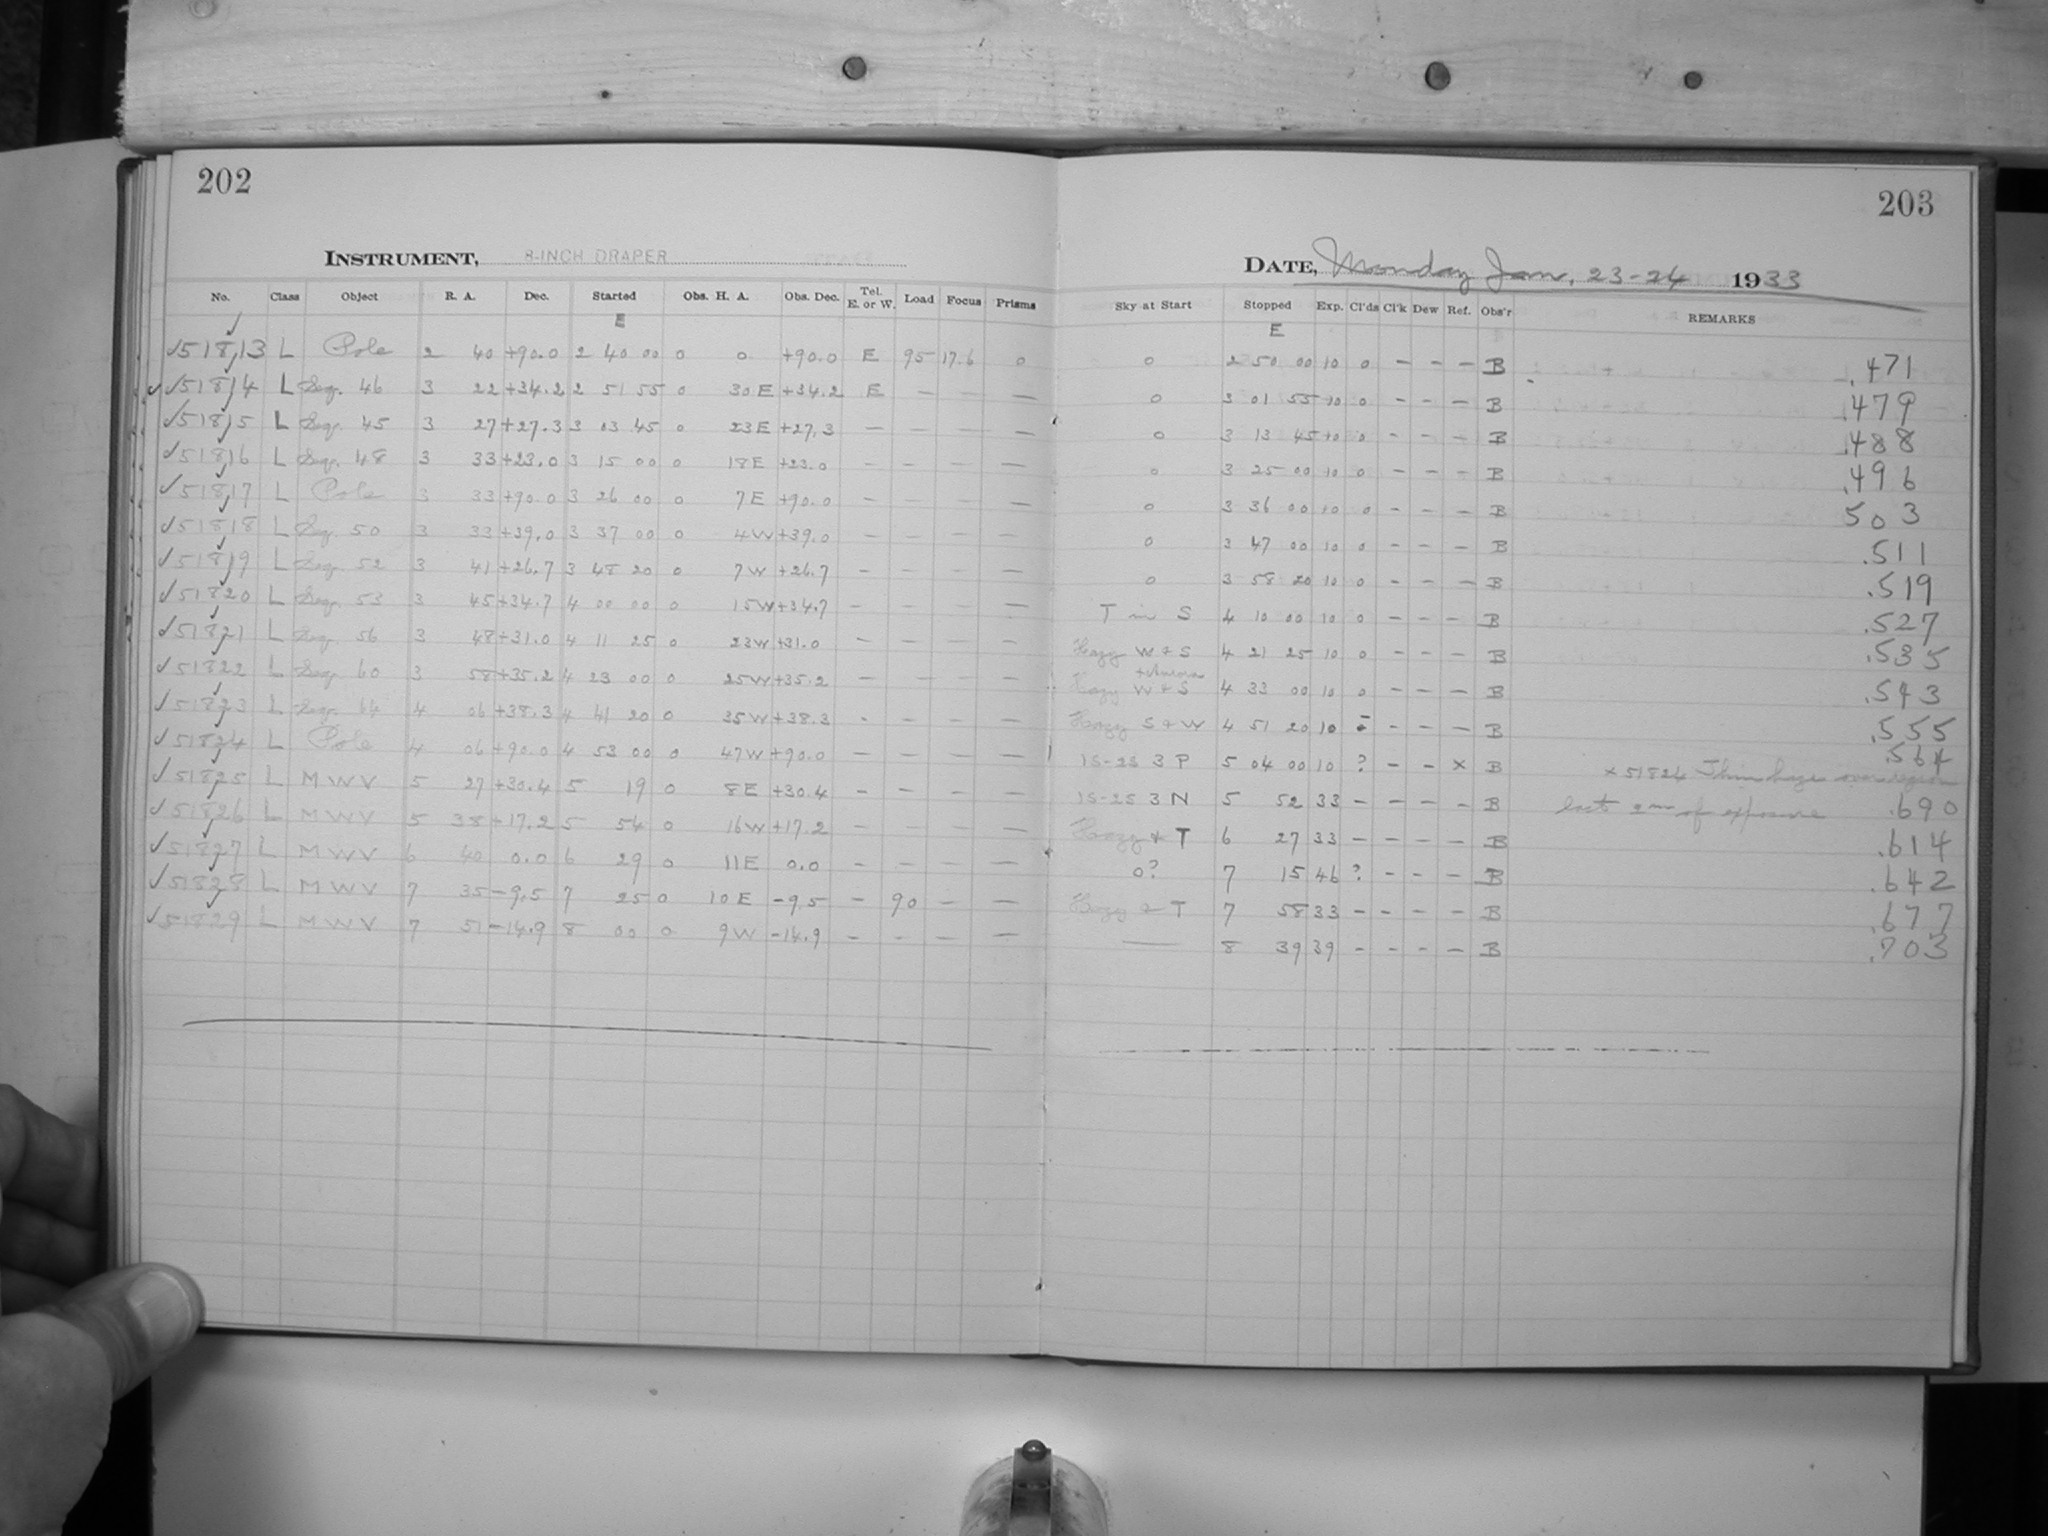 202
INSTRUMENT, 8-INCH DRAPER
No. Class Object R. A. Dec. Started Obs. H. A. Obs. Dec. Tel. E. or W. Load Focus Prisms
E
51813 L Pole 2 40 +90.0 2 40 00 0 0 +90.0 E 95 17.6 0
51814 L Seq. 46 3 22 +34.2 2 51 55 0 30 E +34.2 E — — —
51815 L Seq. 45 3 27 +27.3 3 03 45 0 23 E +27.3 — — — —
51816 L Seq. 48 3 33 +23.0 3 15 00 0 18 E +23.0 — — — —
51817 L Pole 3 33 +90.0 3 26 00 0 7 E +90.0 — — — —
51818 L Seq. 50 3 33 +39.0 3 37 00 0 4 W +39.0 — — — —
51819 L Seq. 52 3 41 +26.7 3 48 20 0 7 W +26.7 — — — —
51820 L Seq. 53 3 45 +34.7 4 00 00 0 15 W +34.7 — — — —
51821 L Seq. 56 3 48 +31.0 4 11 25 0 23 W +31.0 — — — —
51822 L Seq. 60 3 58 +35.2 4 23 00 0 25 W +35.2 — — — —
51823 L Seq. 64 4 06 +38.3 4 41 20 0 35 W +38.3 - — — —
51824 L Pole 4 06 +90.0 4 53 00 0 47 W +90.0 — — — —
51825 L MWV 5 27 +30.4 5 19 0 8 E +30.4 — — — —
51826 L MWV 5 38 +17.2 5 54 0 16 W +17.2 — — — —
51827 L MWV 6 40 0.0 6 29 0 11 E 0.0 — — — —
51828 L MWV 7 35 -9.5 7 25 0 10 E -9.5 — 90 — —
51829 L MWV 7 51 -14.9 8 00 0 9 W -14.9 — - — —
203
DATE, Monday Jan. 23-24 1933
Sky at Start Stopped Exp. Cl'ds Cl'k Dew Ref. Obs'r REMARKS
E
0 2 50 00 10 0 — — — B .471
0 3 01 55 10 0 — — — B .479
0 3 13 45 10 0 — — — B .488
0 3 25 00 10 0 — — — B .496
0 3 36 00 10 0 — — — B 503
0 3 47 00 10 0 — — — B .511
0 3 58 20 10 0 — — — B .519
T in S 4 10 00 10 0 — — — B .527
Hazy W + S 4 21 25 10 0 — — — B .535
+ Aurora
Hazy W + S 4 33 00 10 0 — — — B .543
Hazy S + W 4 51 20 10 — — — B .555
1S-2S 3 P 5 04 00 10 ? — — x B .564
x 51824 Thin haze over region
1S-2S 3 N 5 52 33 — — — — B last 2m of exposure .690
Hazy + T 6 27 33 — — — — B .614
0? 7 15 46 ? — — — B .642
Hazy + T 7 58 33 — — — — B .677
— 8 39 39 — — — — B .703